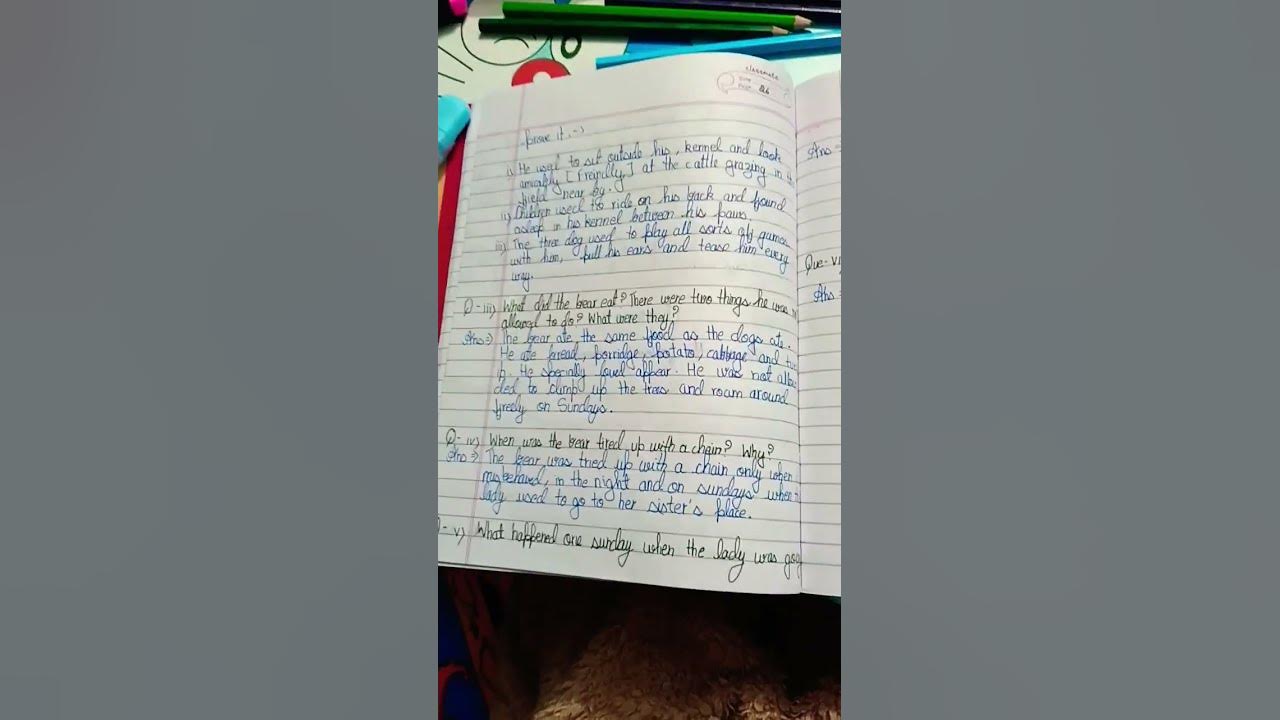 classmate
Date
Page 26
prove it. :->
i) He used to sit outside his, kennel and look
amicably [freandly] at the cattle grazing in
field near by.
ii) Children used to ride on his back and found
asleep in his kennel between his paws.
iii) The three dog used to play all sorts of games
with him, pull his ears and tease him every
way.
Q-iii) What did the bear eat? There were two things he was
allowed to do? What were they?
Ans => The bear ate the same food as the dogs ate.
He ate bread, porridge, potato, cabbage and tur
ip. He specially loved appear. He was not allow
ded to climp up the trees and roam around
freely on Sundays.
Q-iv) When was the bear tired up with a chain? Why?
Ans => The bear was tried up with a chain only when
misbehaved, in the night and on sundays when
lady used to go to her sister's place.
v) What happened one sunday when the lady was
Ans =
Que-VI
Ans =